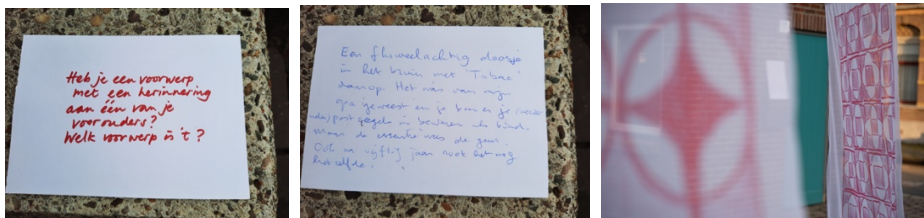 Heb je een voorwerp
met een herinnering
aan één van je
voorouders?
Welk voorwerp is 't?
Een fluweelachtig doosje
in het bruin met 'Tabac'
daarop. Het was van mijn
opa geweest en je kon er je
postzegels in bewaren als kind.
maar de essentie was de geur.
Ook na vijftig jaar rook het nog
hetzelfde.